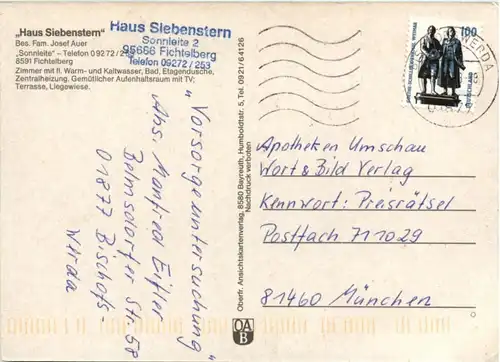 „Haus Siebenstern"
Bes. Fam. Josef Auer
„Sonnleite" – Telefon 0 92 72/2
8591 Fichtelberg
Zimmer mit fl. Warm- und Kaltwasser, Bad, Etagendusche,
Zentralheizung. Gemütlicher Aufenthaltsraum mit TV;
Terrasse, Liegewiese.
Haus Siebenstern
Sonnleite 2
95686 Fichtelberg
Telefon 09272 / 253
„Vorsorgeuntersuchung"
Abs. Manfred Eifler
Belmsdorfer Str. 58
01877 Bischofs
Werda
Oberfr. Ansichtskartenverlag, 8580 Bayreuth, Humboldtstr. 5, Tel. 09 21/6 41 26
Nachdruck verboten
OA
B
100
WERDA
Apotheken Umschau
Wort & Bild Verlag
Kennwort: Preisrätsel
Postfach 711029
81460 München